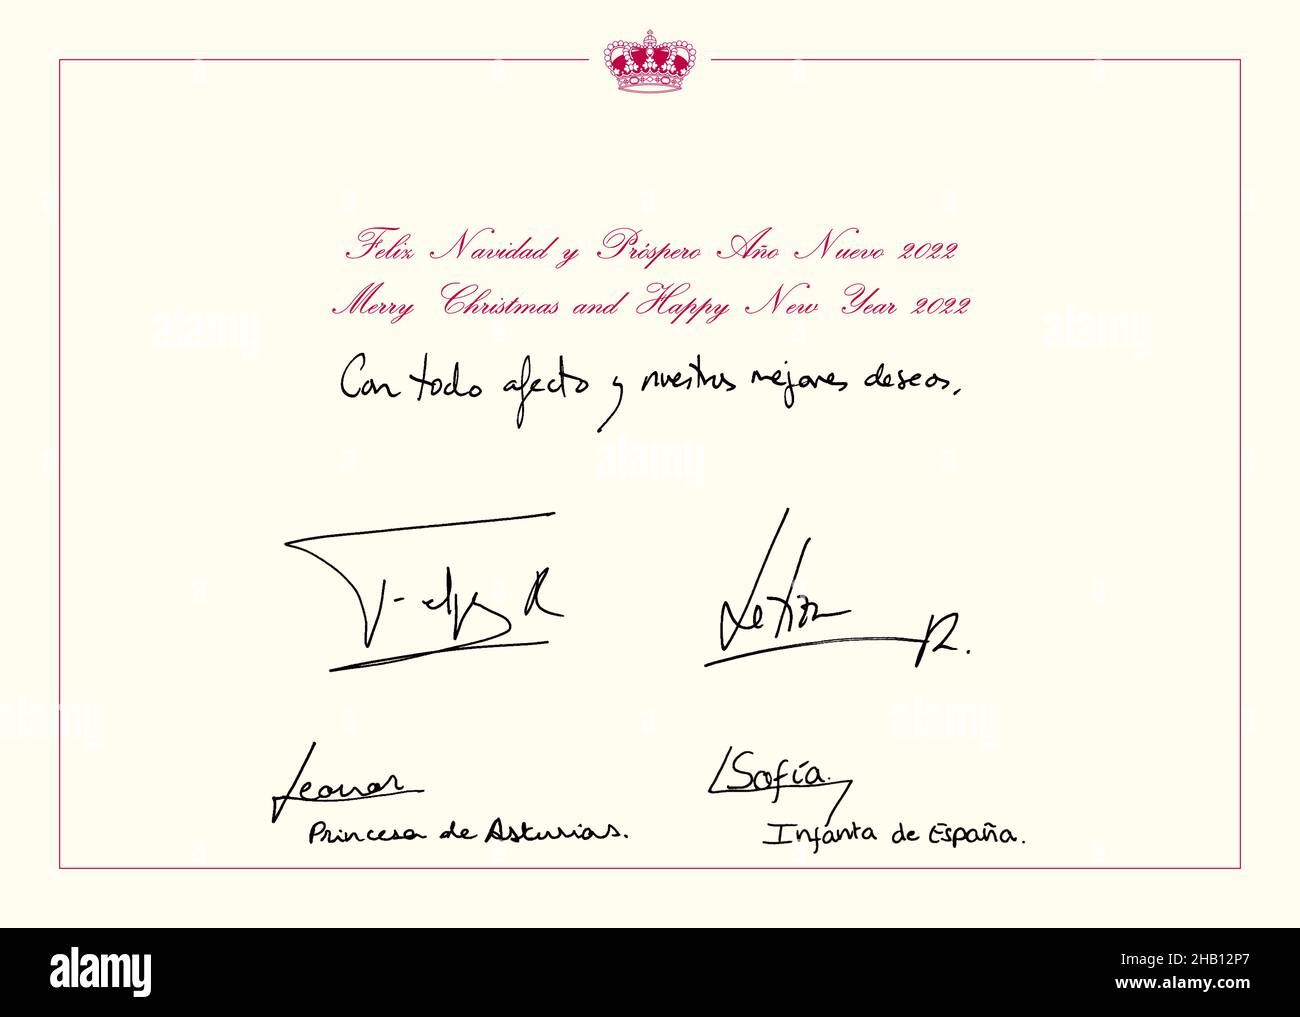 Feliz Navidad y Próspero Año Nuevo 2022
Merry Christmas and Happy New Year 2022
Con todo afecto y nuestros mejores deseos,
Felipe R
Letizia R.
Leonor
Princesa de Asturias.
Sofía.
Infanta de España.
alamy
Image ID: 2HB12P7
www.alamy.com